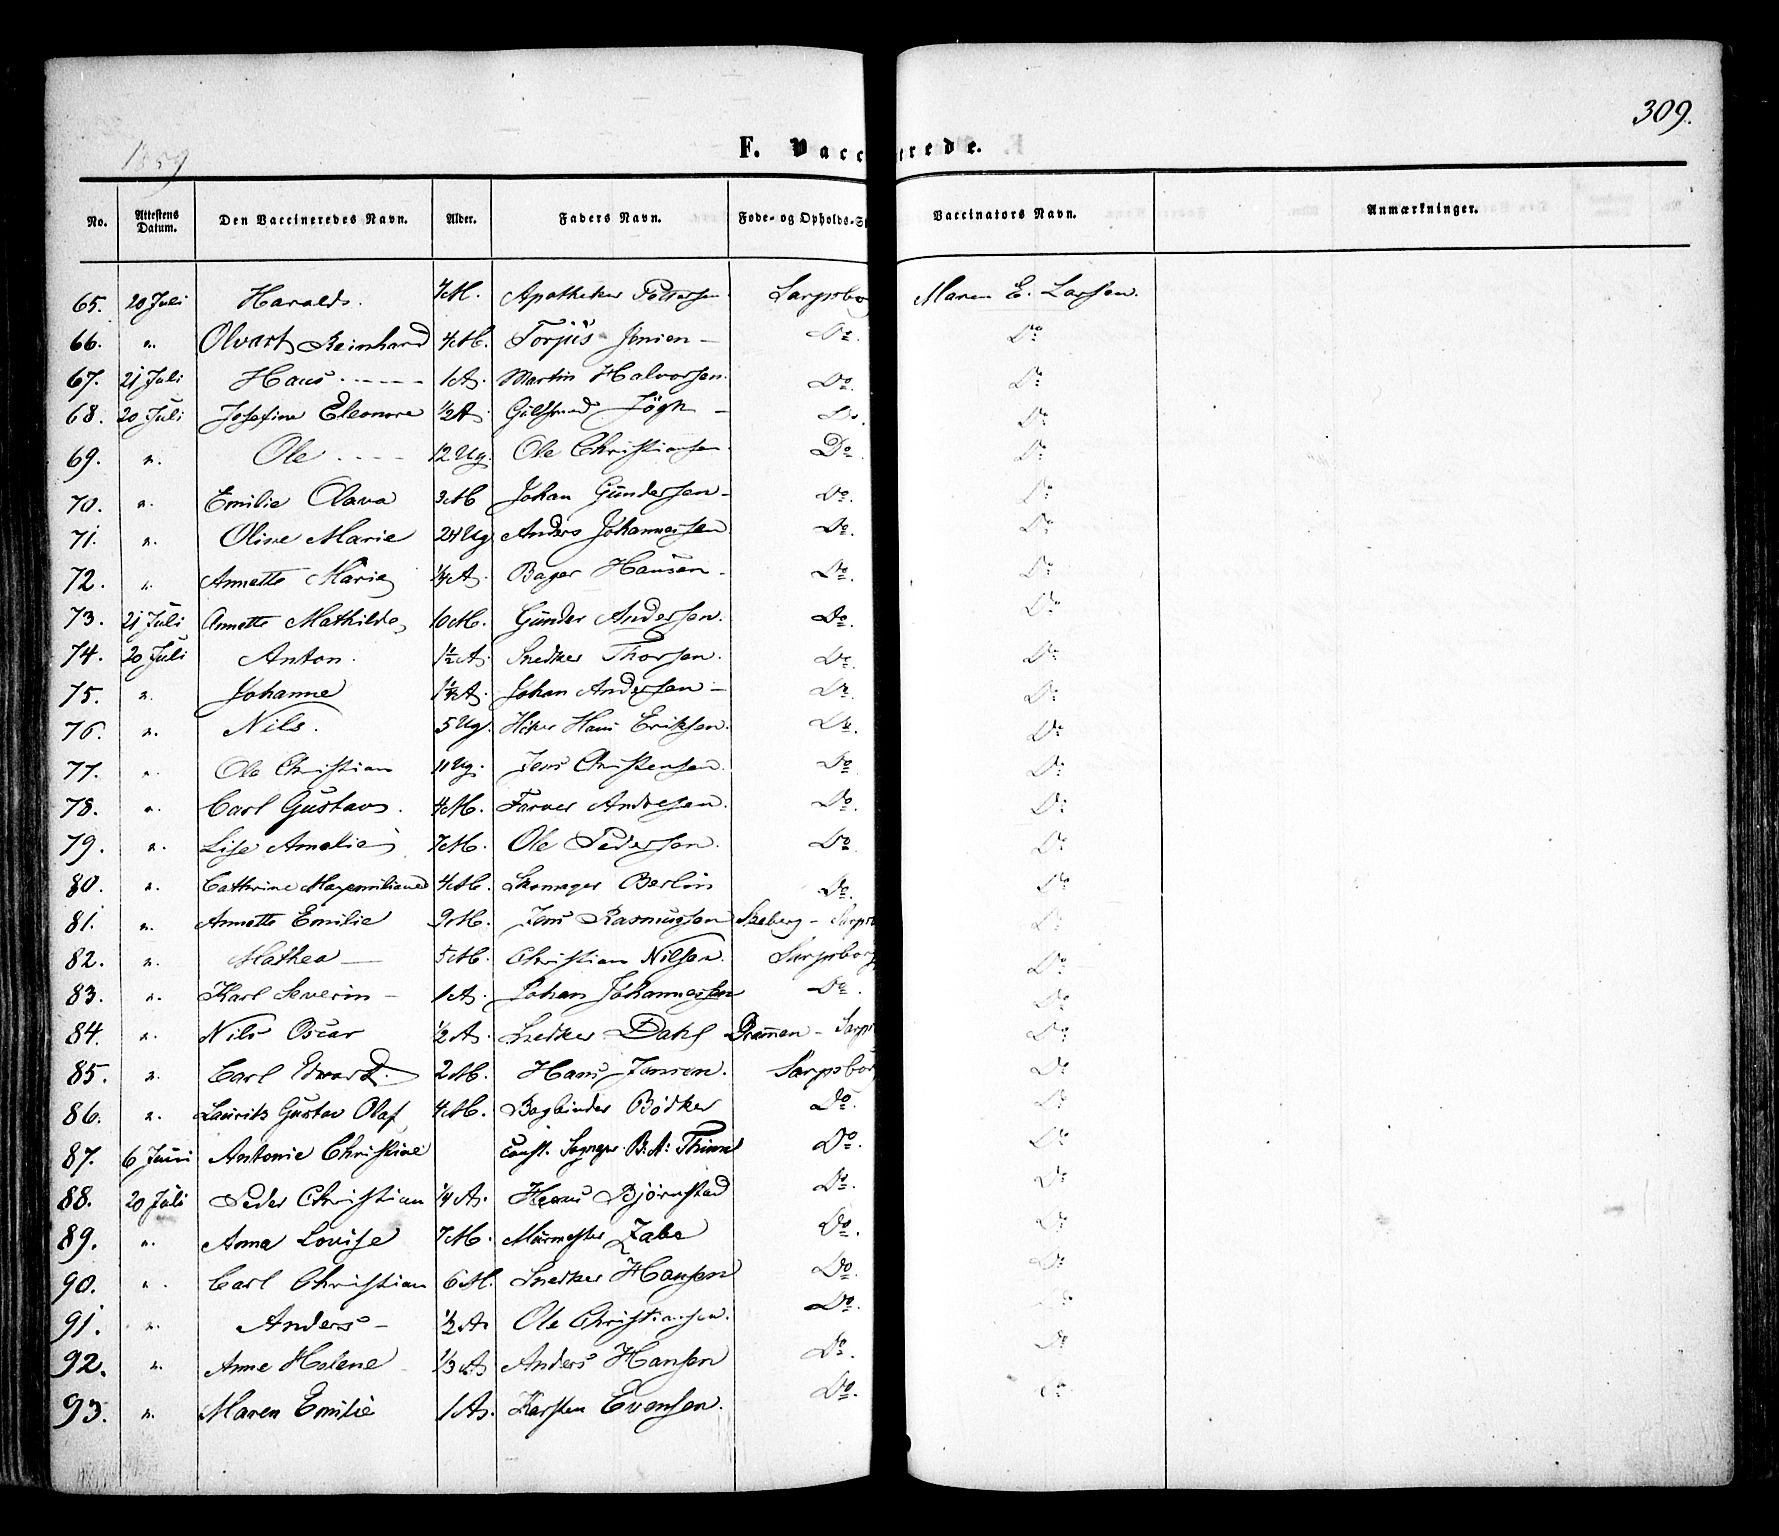 309.
1859
F. Vacc trede.
No. Attestens Datum. Den Vaccineredes Navn. Alder. Faders Navn. Føde- og Opholds-St Vaccinators Navn. Anmærkninger.
65. 20 Juli Harald. 7 M. Apotheker Pettersen Sarpsborg Maren E. Larsen.
66. " Olvart Reinhard 4 M. Torjus Jensen – Do. Do
67. 21 Juli Hans - - - - 1 A. Martin Halvorsen. Do. Do
68. 20 Juli Josefine Eleonore 1/2 A. – Do. Do
69. " Ole - - - - 12 Ug. Ole Christiansen. Do. Do
70. " Emilie Olava 3 M Johan Gundersen – Do. Do
71. " Oline Marie 24 Ug Anders Johannessen Do. Do
72. " Annette Marie 1/4 A. Bager Hansen – Do. Do
73. 21 Juli Annette Mathilde 10 M. Gunder Andersen. Do. Do
74. 20 Juli Anton. 1 1/2 A. Snedker Thorsen. Do. Do
75. " Johanne 1 1/4 A. Johan Andersen – Do. Do
76. " Nils. 5 Ug. Hans Eriksen. Do. Do
77. " Ole Christian 11 Ug. Jens Christensen. Do. Do
78. " Carl Gustav. 4 M. Farver Andresen. Do. Do
79. " Lise Amalie 7 M. Ole Pedersen. Do. Do
80. " Cathrine Maxemiliane 4 M. Skomager Berlin Do. Do
81. " Annette Emilie 9 M. Jens Rasmussen Skeberg – Sarpsb Do
82. " Mathea – 5 M. Christian Nilsen. Sarpsborg Do
83. " Karl Severin – 1 A. Johan Johannessen Do. Do
84. " Nils Oscar 1/2 A. Snedker Dahl Drammen – Sarps Do
85. " Carl Edvard. 2 M. Hans Jensen. Sarpsborg Do
86. " Laurits Gustav Olaf 4 M. Bogbinder Bødker Do. Do
87. 6 Juni Antonie Christine Const. B. A. Do. Do
88. 20 Juli Peder Christian 1/4 A. Hans Bjørnstad Do. Do
89. " Anna Lovise 7 M. Murmester Zabe Do. Do
90. " Carl Christian 6 M. Snedker Hansen Do. Do
91. " Anders – 1/2 A Ole Christiansen. Do. Do
92. " Anne Helene 1/3 A Anders Hansen Do. Do
93. " Maren Emilie 1 A. Karsten Evensen. Do. Do